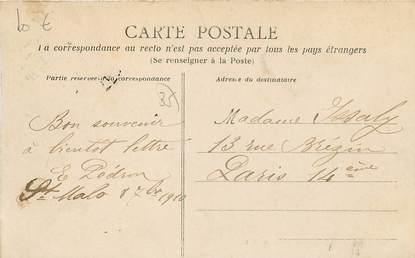 10 €
CARTE POSTALE
La correspondance au recto n'est pas acceptée par tous les pays étrangers
(Se renseigner à la Poste)
Partie réservée à la correspondance
Adresse du destinataire
35
Bon souvenir
à bientot lettre
E Pédron
St Malo 8 7bre 1910
Madame Issaly
13 rue Brézin
Paris 14 ème